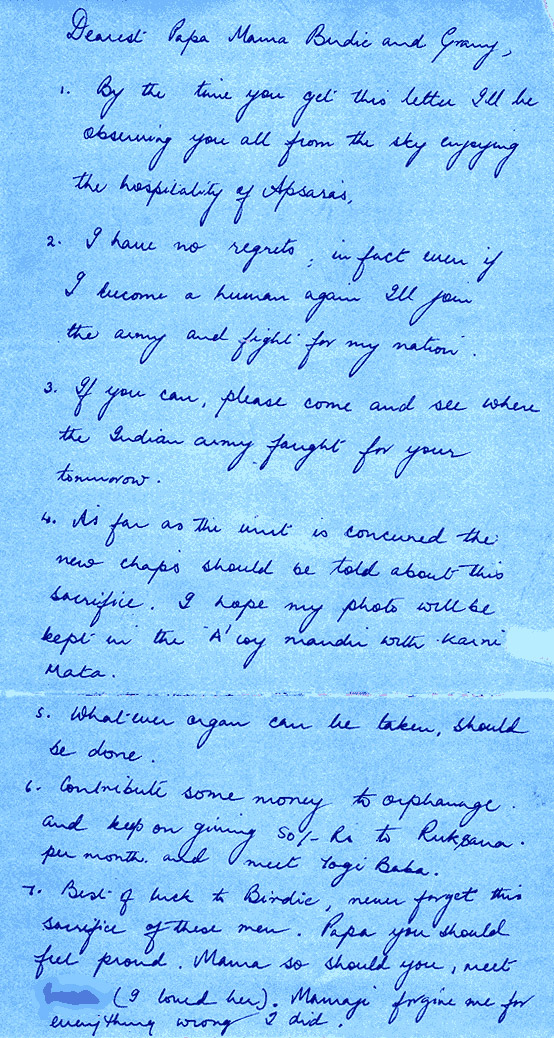 Dearest Papa Mama Birdie and Granny,
1. By the time you get this letter I'll be
observing you all from the sky enjoying
the hospitality of Apsaras.
2. I have no regrets, in fact even if
I become a human again I'll join
the army and fight for my nation.
3. If you can, please come and see where
the Indian army fought for your
tommorow.
4. As far as the unit is concerned the
new chaps should be told about this
sacrifice. I hope my photo will be
kept in the 'A' coy mandir with Karni
Mata.
5. Whatever organ can be taken, should
be done.
6. Contribute some money to orphanage.
and keep on giving 50/- Rs to Ruksana.
per month. and meet Yogi Baba.
7. Best of luck to Birdie, never forget this
sacrifice of these men. Papa you should
feel proud. Mama so should you, meet
(I loved her). Mamaji forgive me for
everything wrong I did.